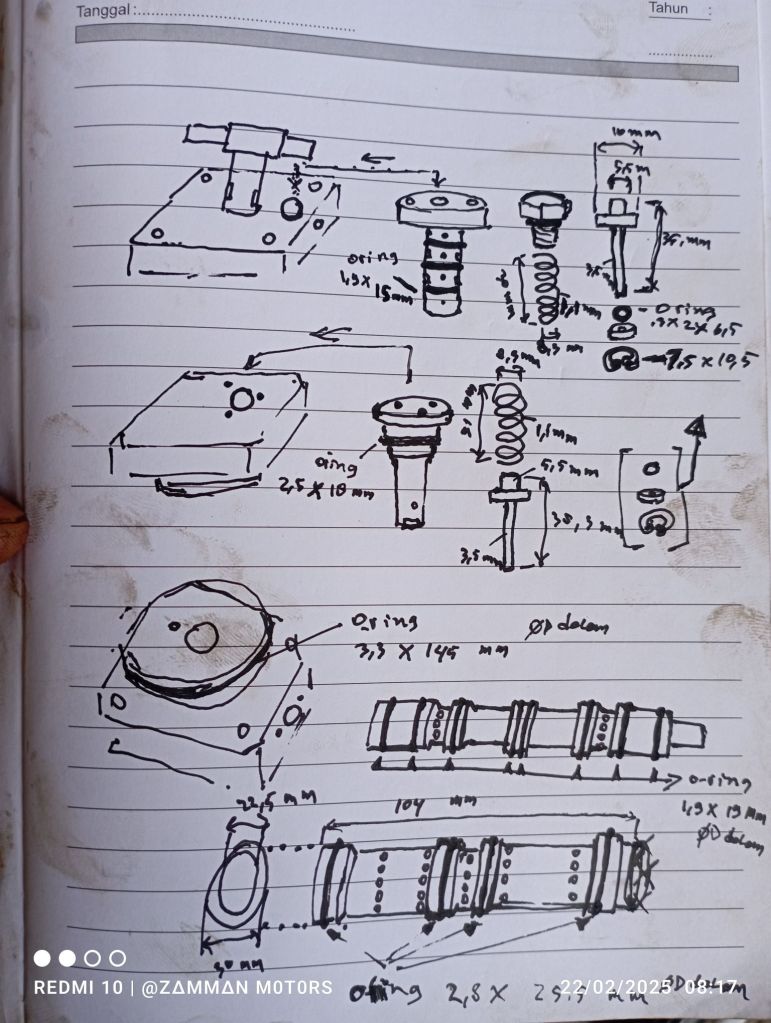 Tanggal :
Tahun :
10 mm
5,5 m
35, mm
oring
1,9 x
15 mm
1,1 mm
8,3 m
3,5
- O ring
,9 x 2 x 6,5
7,5 x 10,5
8,3 mm
1,1 mm
oring
2,5 x 18 mm
5,5 mm
35, 3 mm
3,5 mm
O.ring
3,3 x 145 mm
ØD dalam
o-ring
1,9 x 19 mm
ØD dalam
22,5 mm
104 mm
30 mm
o-ring 2,8 x 25,5 mm ØD dalam
REDMI 10 | @ZΔMMΔN MOTORS
22/02/2025 08:17